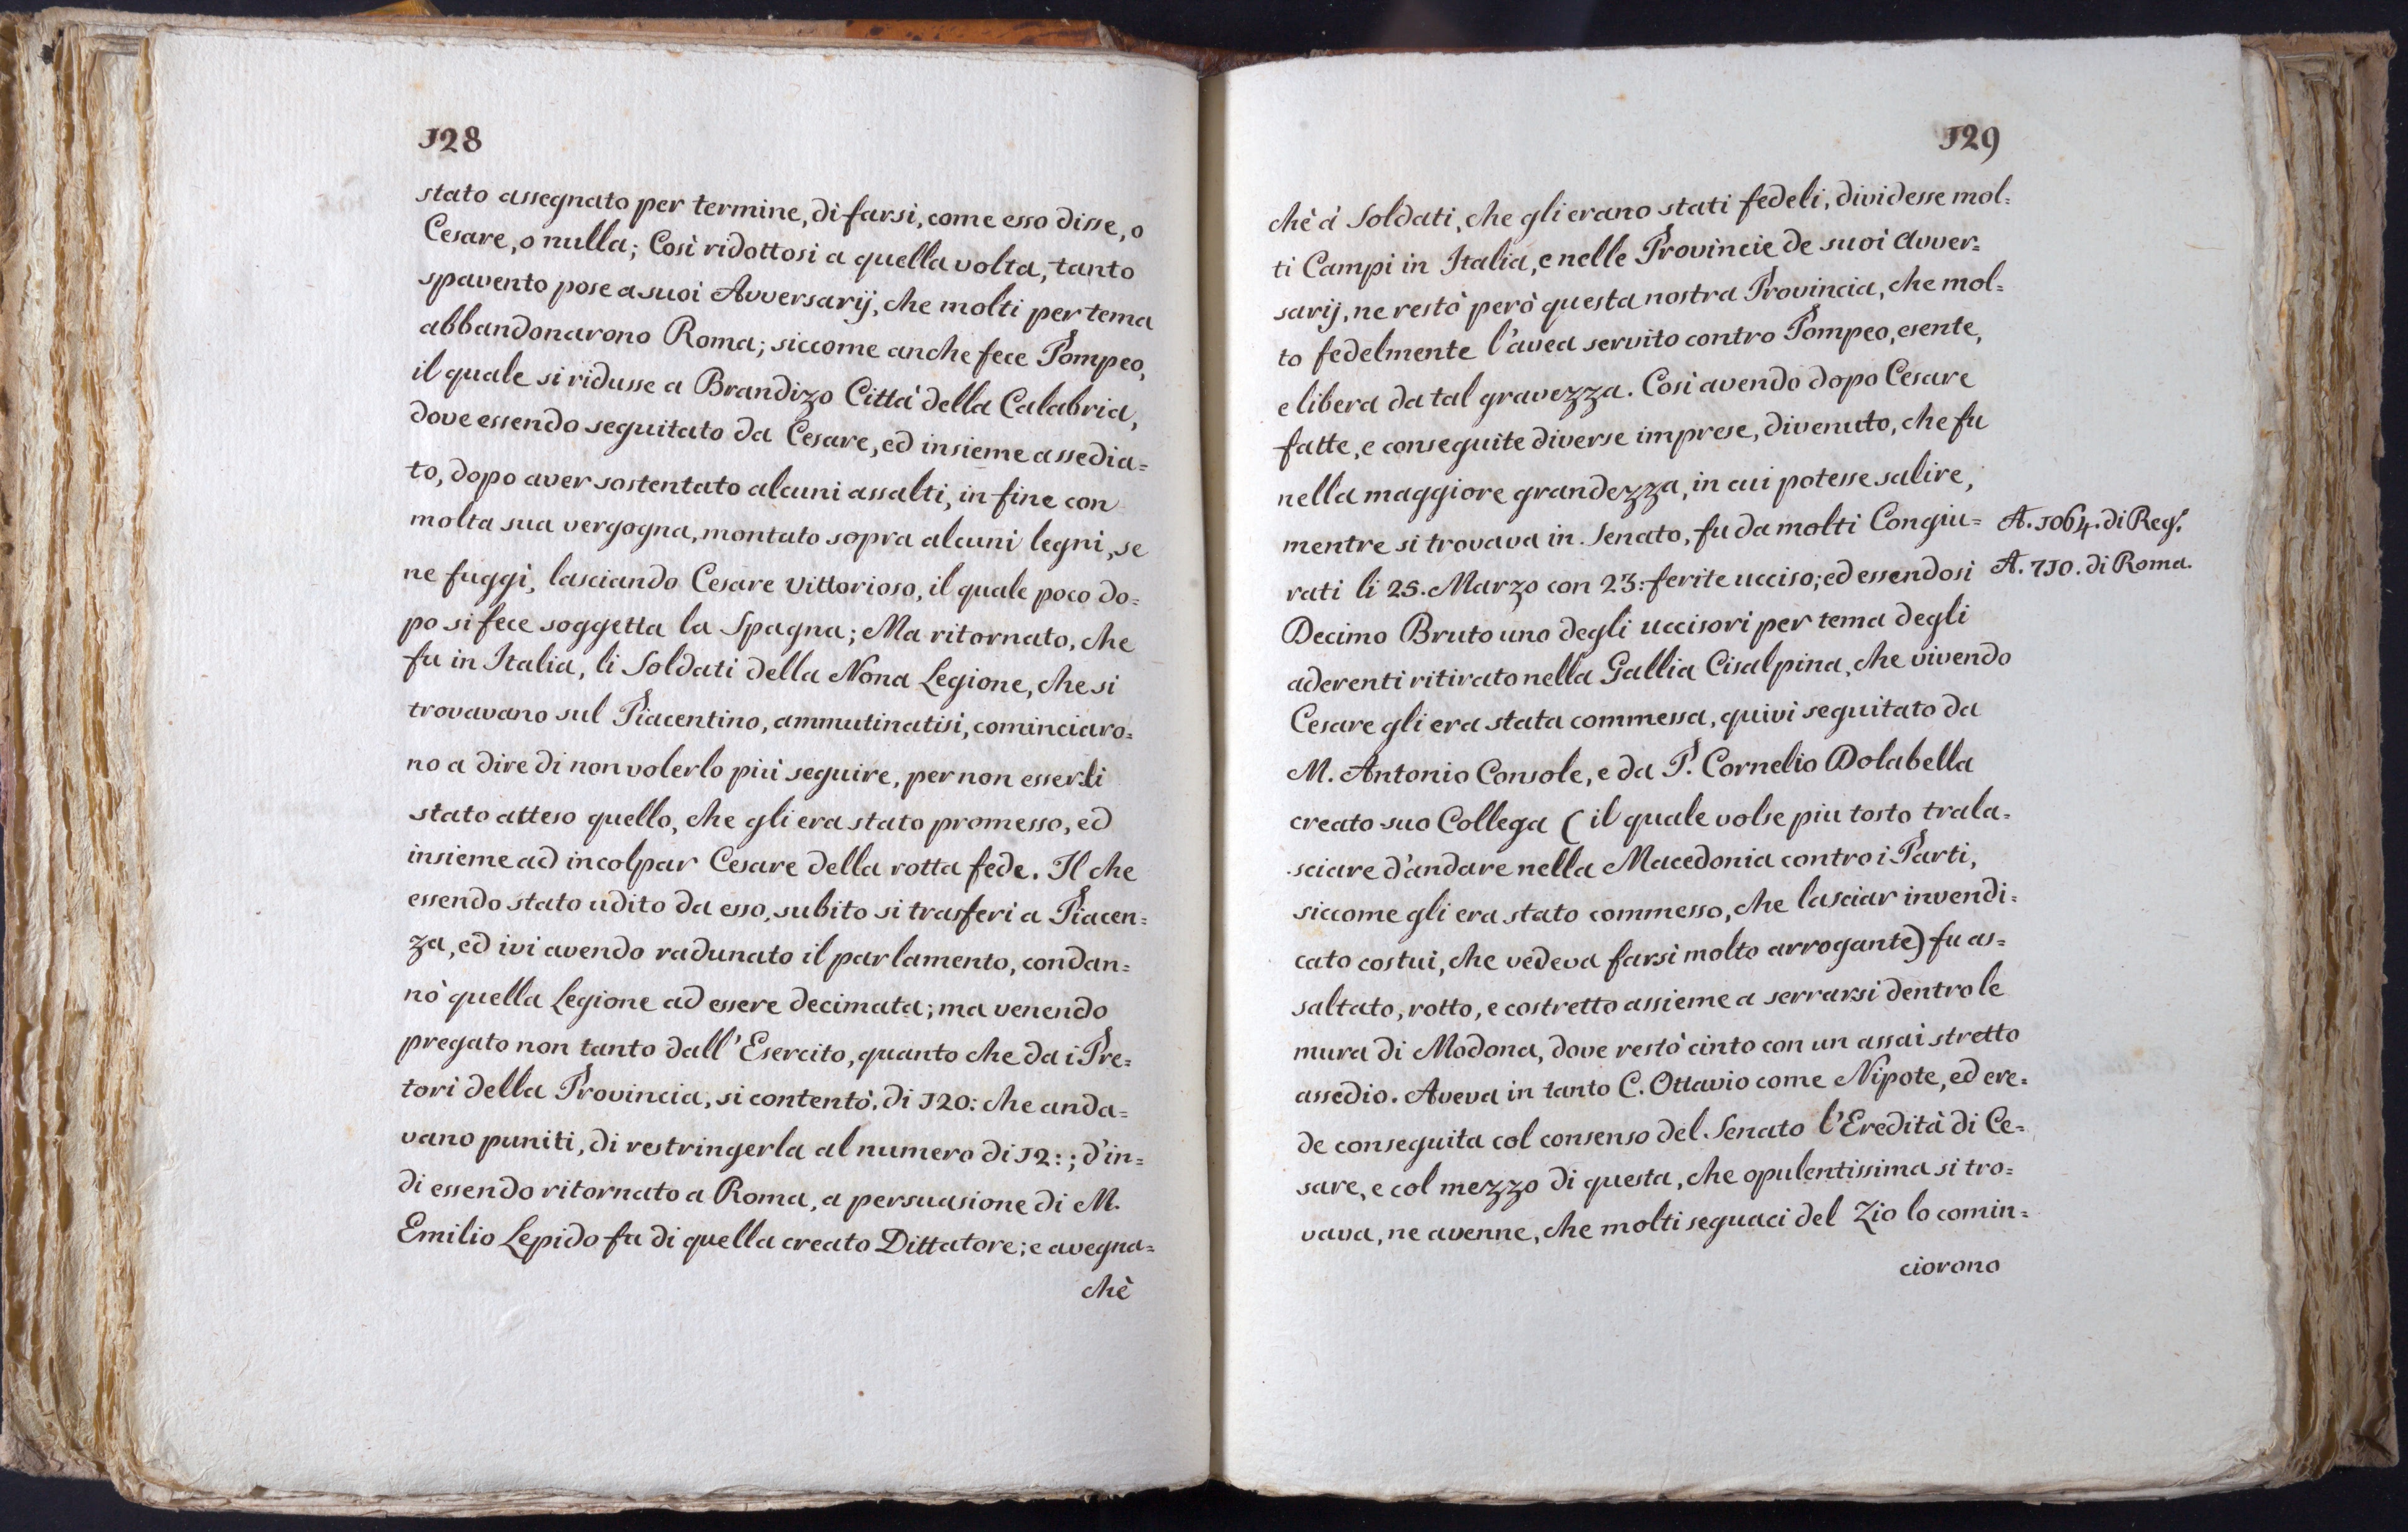 128
stato assegnato per termine, di farsi, come esso disse, o
Cesare, o nulla; Così ridottosi a quella volta, tanto
spavento pose a suoi Avversarij, che molti per tema
abbandonarono Roma; siccome anche fece Pompeo,
il quale si ridusse a Brandizo Città della Calabria,
dove essendo seguitato da Cesare, ed insieme assedia=
to, dopo aver sostentato alcuni assalti, in fine con
molta sua vergogna, montato sopra alcuni legni, se
ne fuggì, lasciando Cesare vittorioso, il quale poco do=
po si fece soggetta la Spagna; Ma ritornato, che
fu in Italia, li Soldati della Nona Legione, che si
trovavano sul Piacentino, ammutinatisi, cominciaro=
no a dire di non volerlo più seguire, per non esserli
stato atteso quello, che gli era stato promesso, ed
insieme ad incolpar Cesare della rotta fede. Il che
essendo stato udito da esso, subito si trasferì a Piacen=
za, ed ivi avendo radunato il parlamento, condan=
nò quella Legione ad essere decimata; ma venendo
pregato non tanto dall'Esercito, quanto che da i Pre=
tori della Provincia, si contentò, di 120: che anda=
vano puniti, di restringerla al numero di 12:; d'in=
di essendo ritornato a Roma, a persuasione di M.
Emilio Lepido fu di quella creato Dittatore; e avegna=
chè
129
chè à Soldati, che gli erano stati fedeli, dividesse mol=
ti Campi in Italia, e nelle Provincie de suoi Avver=
sarij, ne restò però questa nostra Provincia, che mol=
to fedelmente l'avea servito contro Pompeo, esente,
e libera da tal gravezza. Così avendo dopo Cesare
fatte, e conseguite diverse imprese, divenuto, che fu
nella maggiore grandezza, in cui potesse salire,
mentre si trovava in Senato, fu da molti Congiu= A. 1064. di Reg.
rati li 25. Marzo con 23: ferite ucciso; ed essendosi A. 710. di Roma.
Decimo Bruto uno degli uccisori per tema degli
aderenti ritirato nella Gallia Cisalpina, che vivendo
Cesare gli era stata commessa, quivi seguitato da
M. Antonio Console, e da P. Cornelio Dolabella
creato suo Collega (il quale volse piu tosto trala=
sciare d'andare nella Macedonia contro i Parti,
siccome gli era stato commesso, che lasciar invendi=
cato costui, che vedeva farsi molto arrogante) fu as=
saltato, rotto, e costretto assieme a serrarsi dentro le
mura di Modona, dove restò cinto con un assai stretto
assedio. Aveva in tanto C. Ottavio come Nipote, ed ere=
de conseguita col consenso del Senato l'Eredità di Ce=
sare, e col mezzo di questa, che opulentissima si tro=
vava, ne avenne, che molti seguaci del Zio lo comin=
ciorono